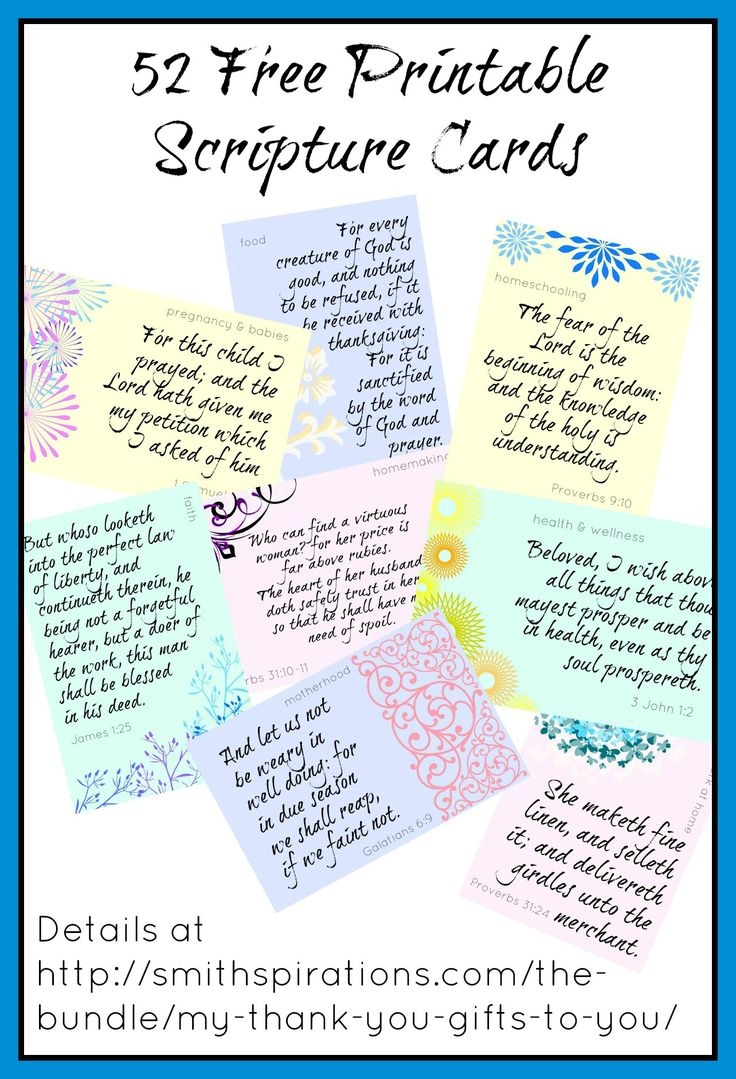 52 Free Printable
Scripture Cards
food
For every
creature of God is
good, and nothing
to be refused, if it
be received with
thanksgiving:
For it is
sanctified
by the word
of God and
prayer.
homeschooling
The fear of the
Lord is the
beginning of wisdom:
and the knowledge
of the holy is
understanding.
Proverbs 9:10
pregnancy & babies
For this child I
prayed; and the
Lord hath given me
my petition which
I asked of him
faith
But whoso looketh
into the perfect law
of liberty, and
continueth therein, he
being not a forgetful
hearer, but a doer of
the work, this man
shall be blessed
in his deed.
James 1:25
homemakin
Who can find a virtuous
woman? for her price is
far above rubies.
The heart of her husband
doth safely trust in her
so that he shall have n
need of spoil.
rbs 31:10-11
health & wellness
Beloved, I wish abov
all things that thou
mayest prosper and be
in health, even as thy
soul prospereth.
3 John 1:2
motherhood
And let us not
be weary in
well doing: for
in due season
we shall reap,
if we faint not.
Galatians 6:9
at home
She maketh fine
linen, and selleth
it; and delivereth
girdles unto the
merchant.
Proverbs 31:24
Details at
http://smithspirations.com/the-
bundle/my-thank-you-gifts-to-you/